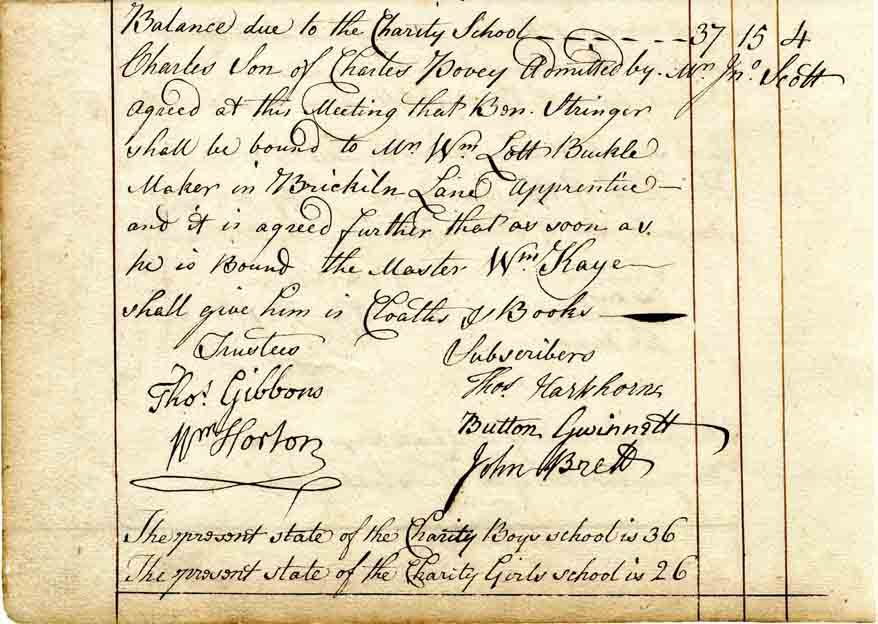 Balance due to the Charity School 37 15 4
Charles Son of Charles Bovey Admitted by Mr Jno. Scott
agreed at this Meeting that Ben. Stringer
shall be bound to Mr Wm Lott Buckle
Maker in Brickiln Lane apprentice
and it is agreed further that as soon as
he is Bound the Master Wm Kaye
shall give him is Cloaths & Books
Trustees Subscribers
Thos. Gibbons Thos Hawthorne
Wm Horton Button Gwinnett
John Brett
The present state of the Charity Boys school is 36
The present state of the Charity Girls school is 26